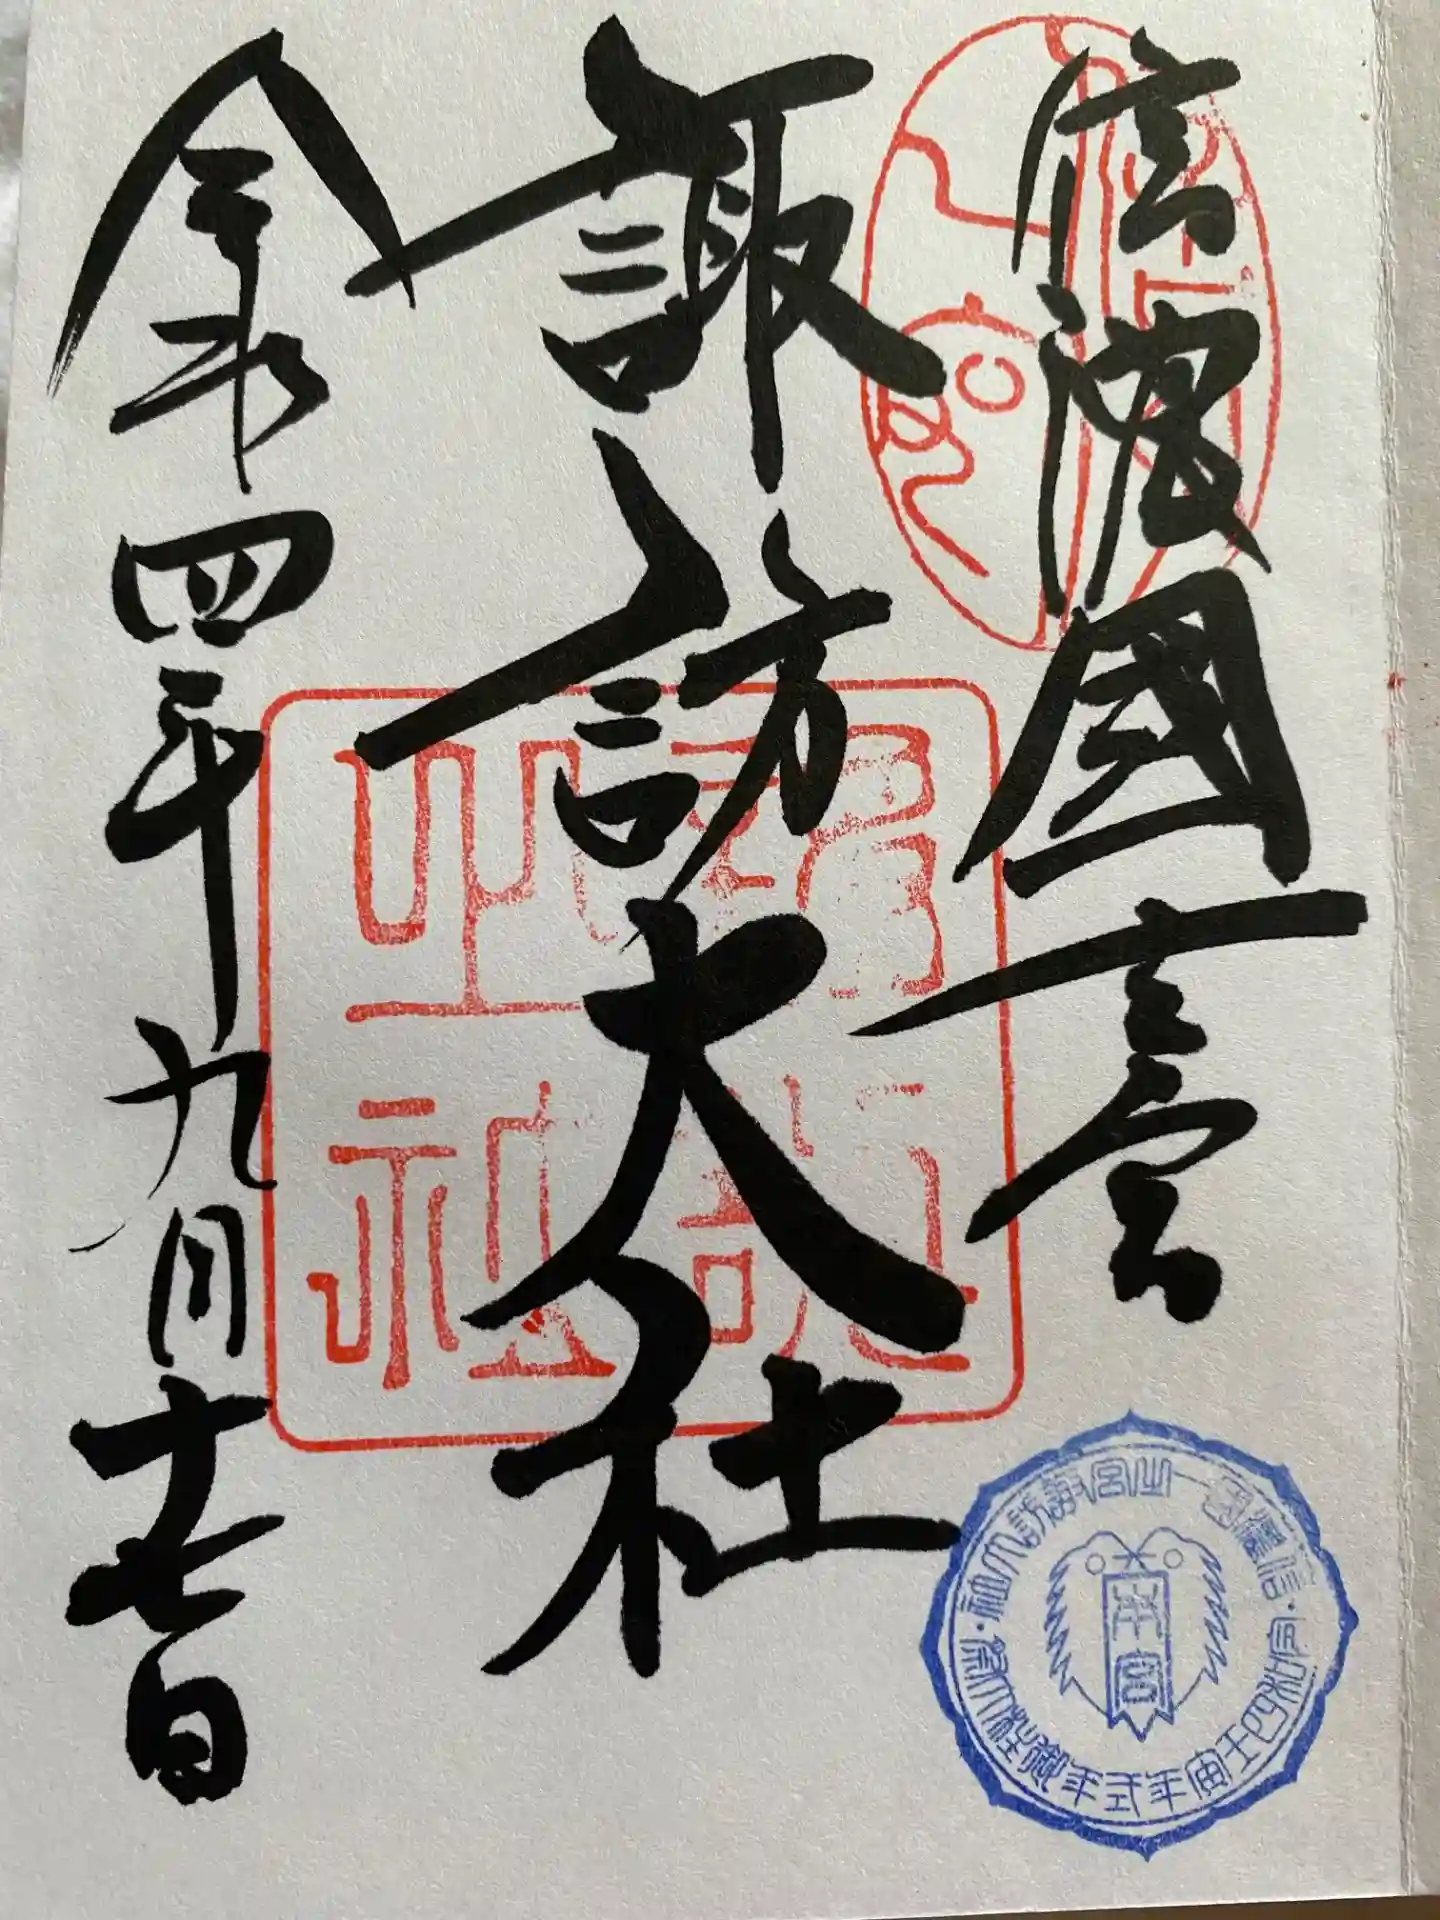 信濃國一之宮
諏訪大社
令和四年九月十七日
信濃國一之宮諏訪大社
本宮
令和四壬寅年式年御柱大祭